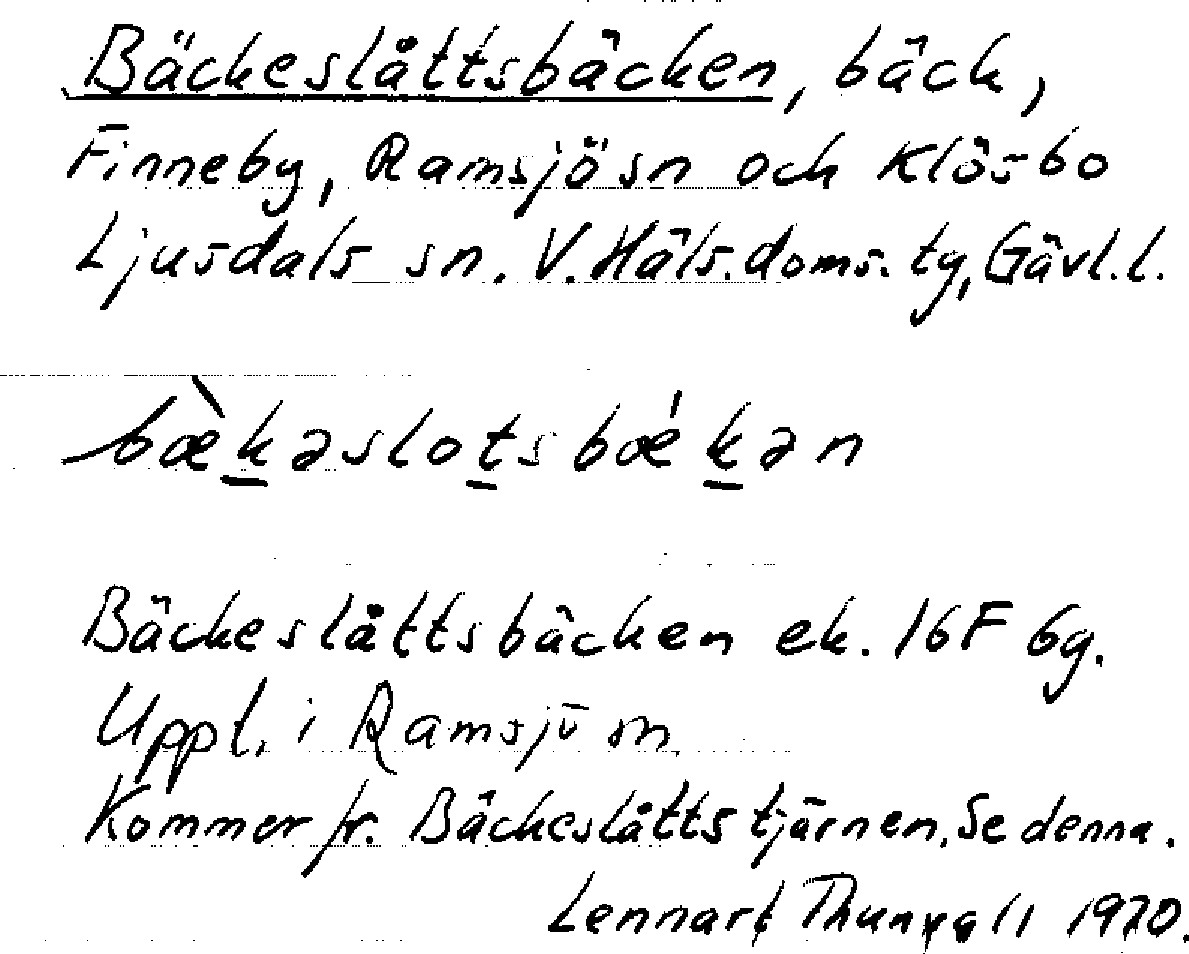 Bäckeslåttsbäcken, bäck,
Finneby, Ramsjö sn och Klösbo
Ljusdals sn. V. Häls. doms. tg, Gävl. l.
bæ̀kəslotsbǽkən
Bäckeslåttsbäcken ek. 16F 6g.
Uppt. i Ramsjö sn.
Kommer fr. Bäckeslåttstjärnen. Se denna.
Lennart Thunvall 1970.